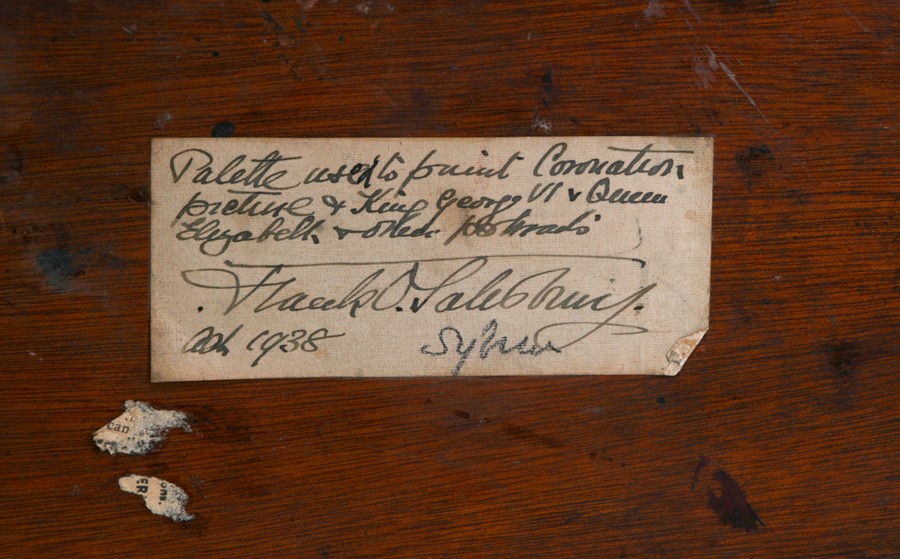 Palette used to paint Coronation
picture & King George VI & Queen
Elizabeth & other portraits
Frank O. Salisbury.
Oct 1938
can
ons.
ER